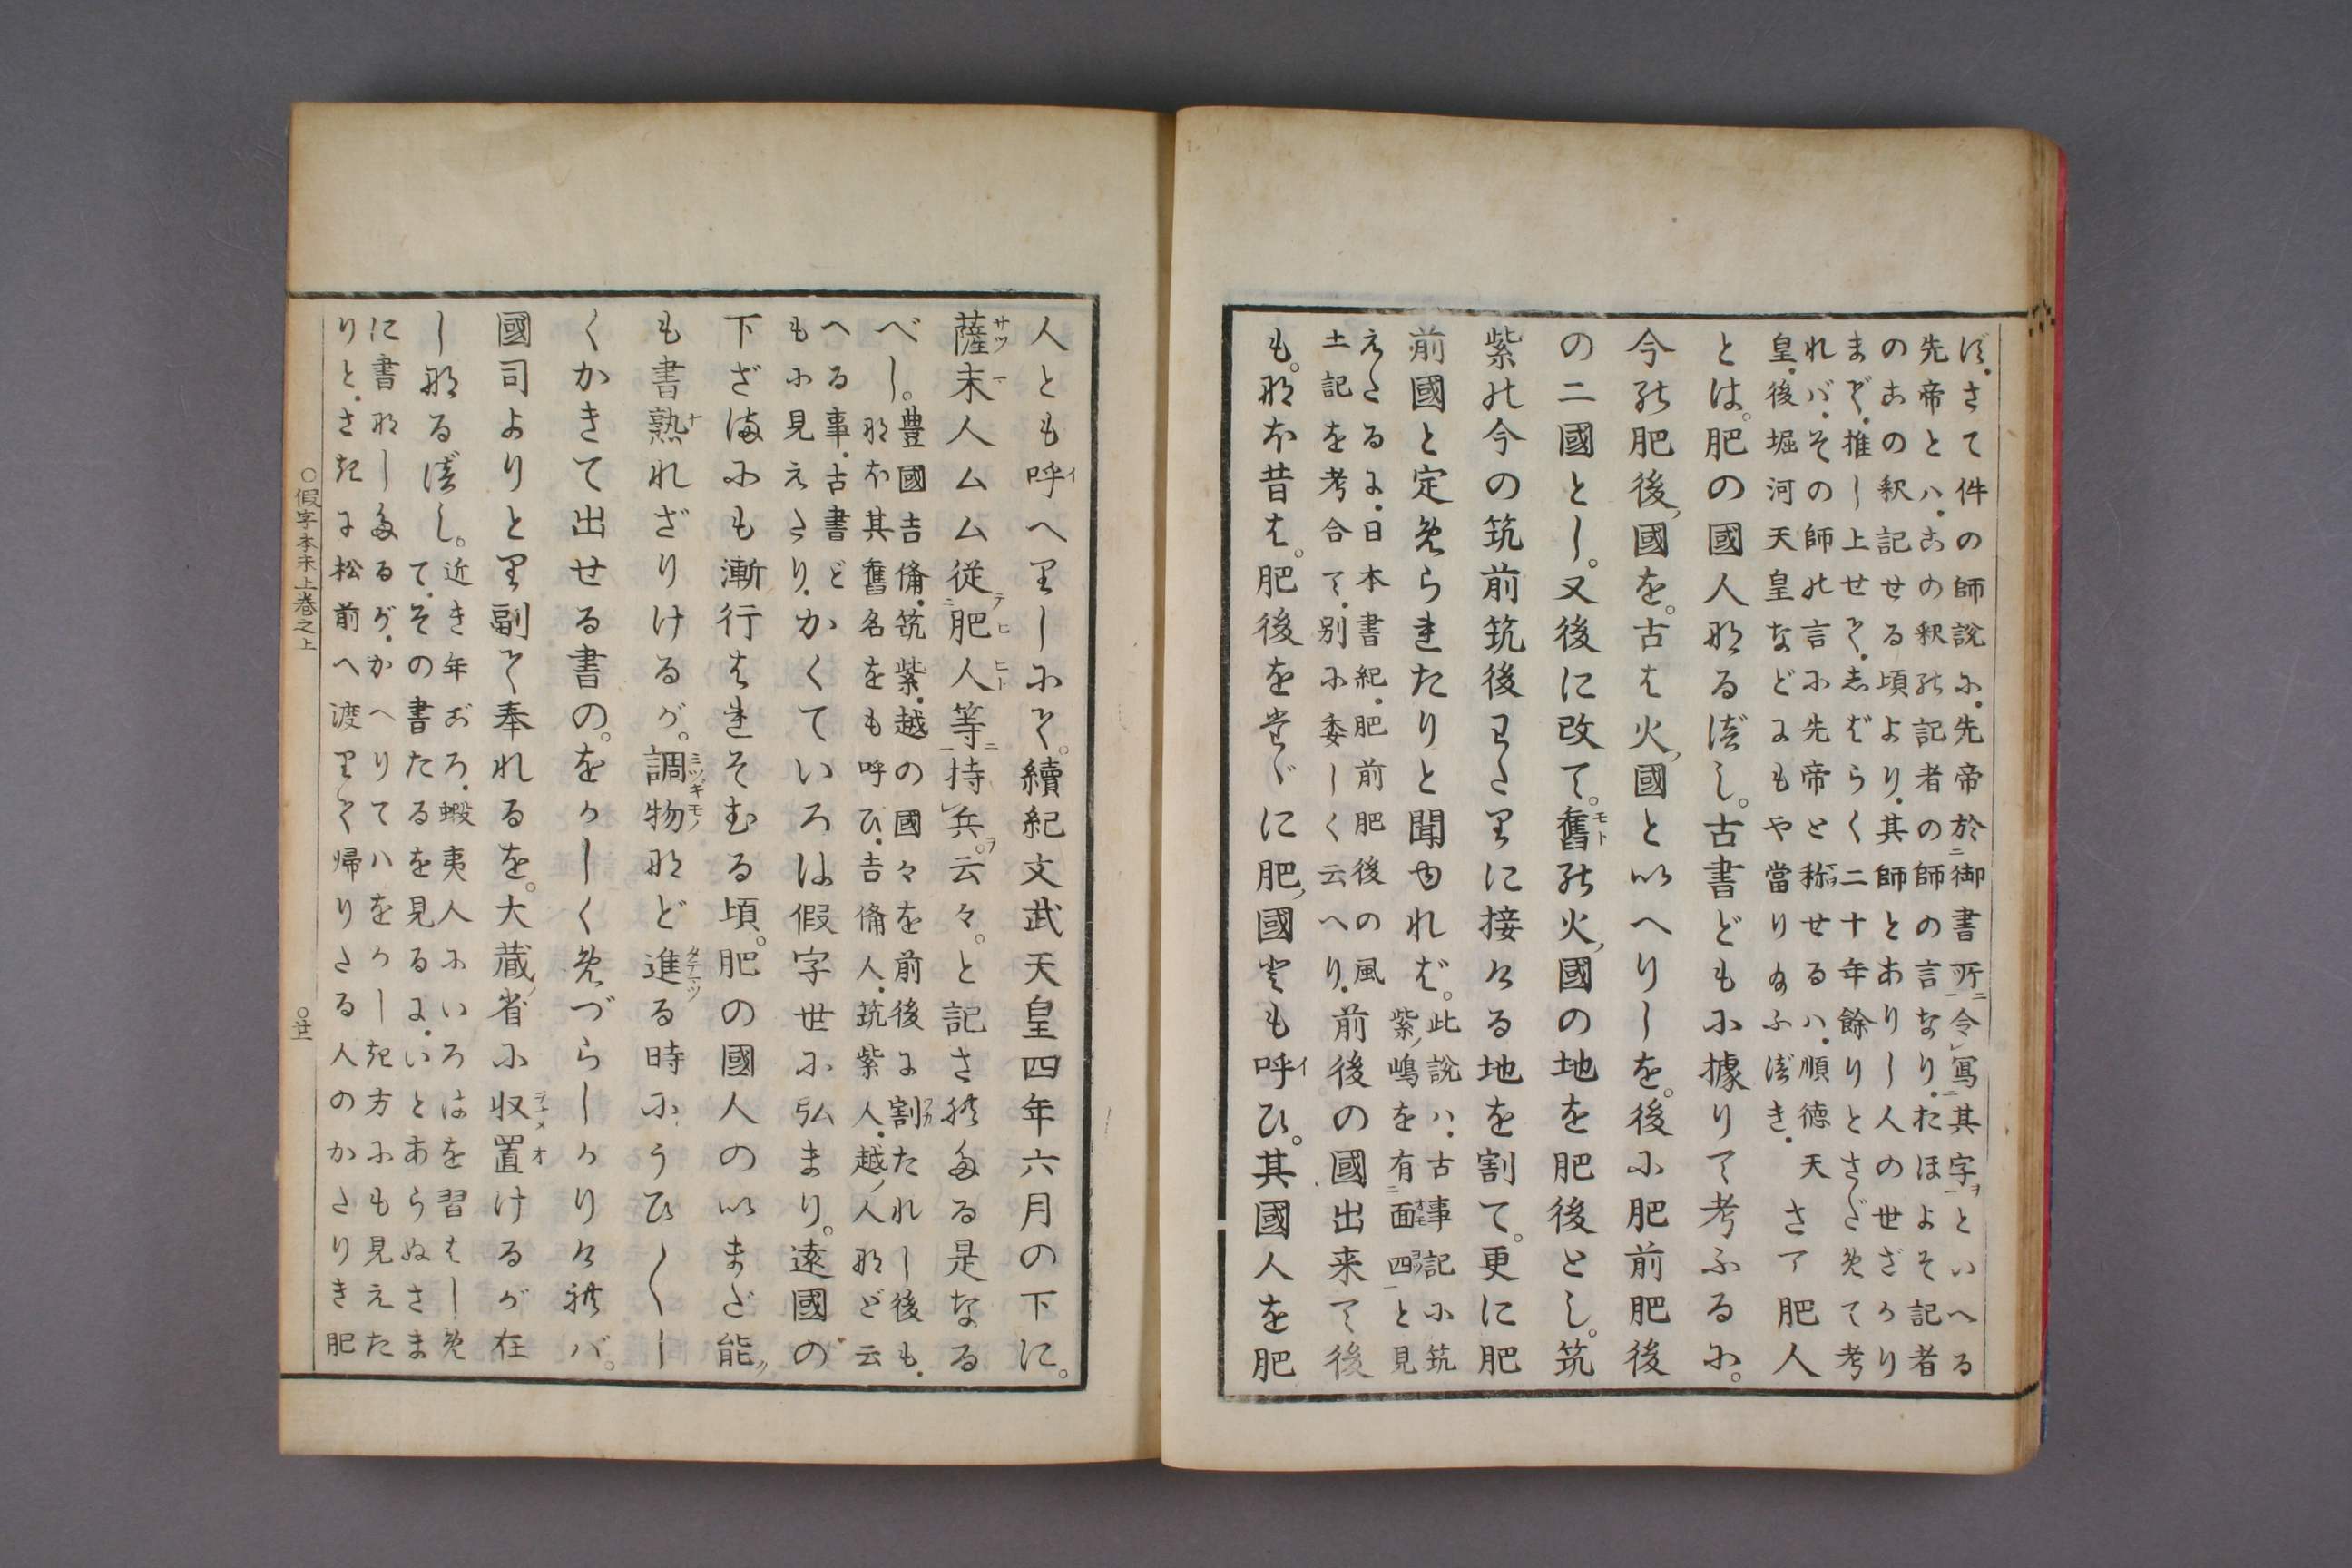 ば.さて件の師説に.先帝於御書所令寫其字といへる
先帝とハ.この釈の記者の師の言なり.おほよそ記者
のこの釈記せる頃より.其師とありし人の世ざかり
まで.推し上せて.志ばらく二十年餘りとさだめて考
れバ.その師の言に先帝と称せるハ.順徳天
皇.後堀河天皇などにもや當り給ふべき.
さて肥人
とは。肥の國人なるべし。古書どもに據りて考ふるに。
今の肥後ノ國を。古は火ノ國といへりしを。後に肥前肥後
の二國とし。又後に改て。舊の火ノ國の地を肥後とし。筑
紫の今の筑前筑後わたりに接ける地を割て。更に肥
前國と定められたりと聞ゆれば。
此説ハ.古事記に筑
紫ノ嶋を有面四と見
えたるに.日本書紀.肥前肥後の風
土記を考合て.別に委しく云へり.
前後の國出来て後
も。なほ昔は。肥後をたゞに肥ノ國とも呼ひ。其國人を肥
人とも呼へりしにて。續紀文武天皇四年六月の下に。
薩末人ムム従肥人等持兵。云々。と記されたる是なる
べし。
豊國吉備.筑紫.越の國々を前後に割たれし後も.
なほ其舊名をも呼ひ.吉備人.筑紫人.越ノ人など云
へる事.古書ど
もに見えたり.
かくていろは假字世に弘まり。遠國の
下ざまにも漸行はれそむる頃。肥の國人のいまだ能ク
も書熟れざりけるが。調物など進る時に。うひ〱し
くかきて出せる書の。をかしくめづらしかりけれバ。
國司よりとり副て奉れるを。大蔵ノ省に収置けるが在
しなるべし。
近き年ごろ.蝦夷人にいろはを習はしめ
て.その書たるを見るに.いとあらぬさま
に書なしたるが.かへりてハをかしき方にも見えた
りと.さきに松前へ渡りて帰りたる人のかたりき肥
○假字本末上巻之上
○廿一